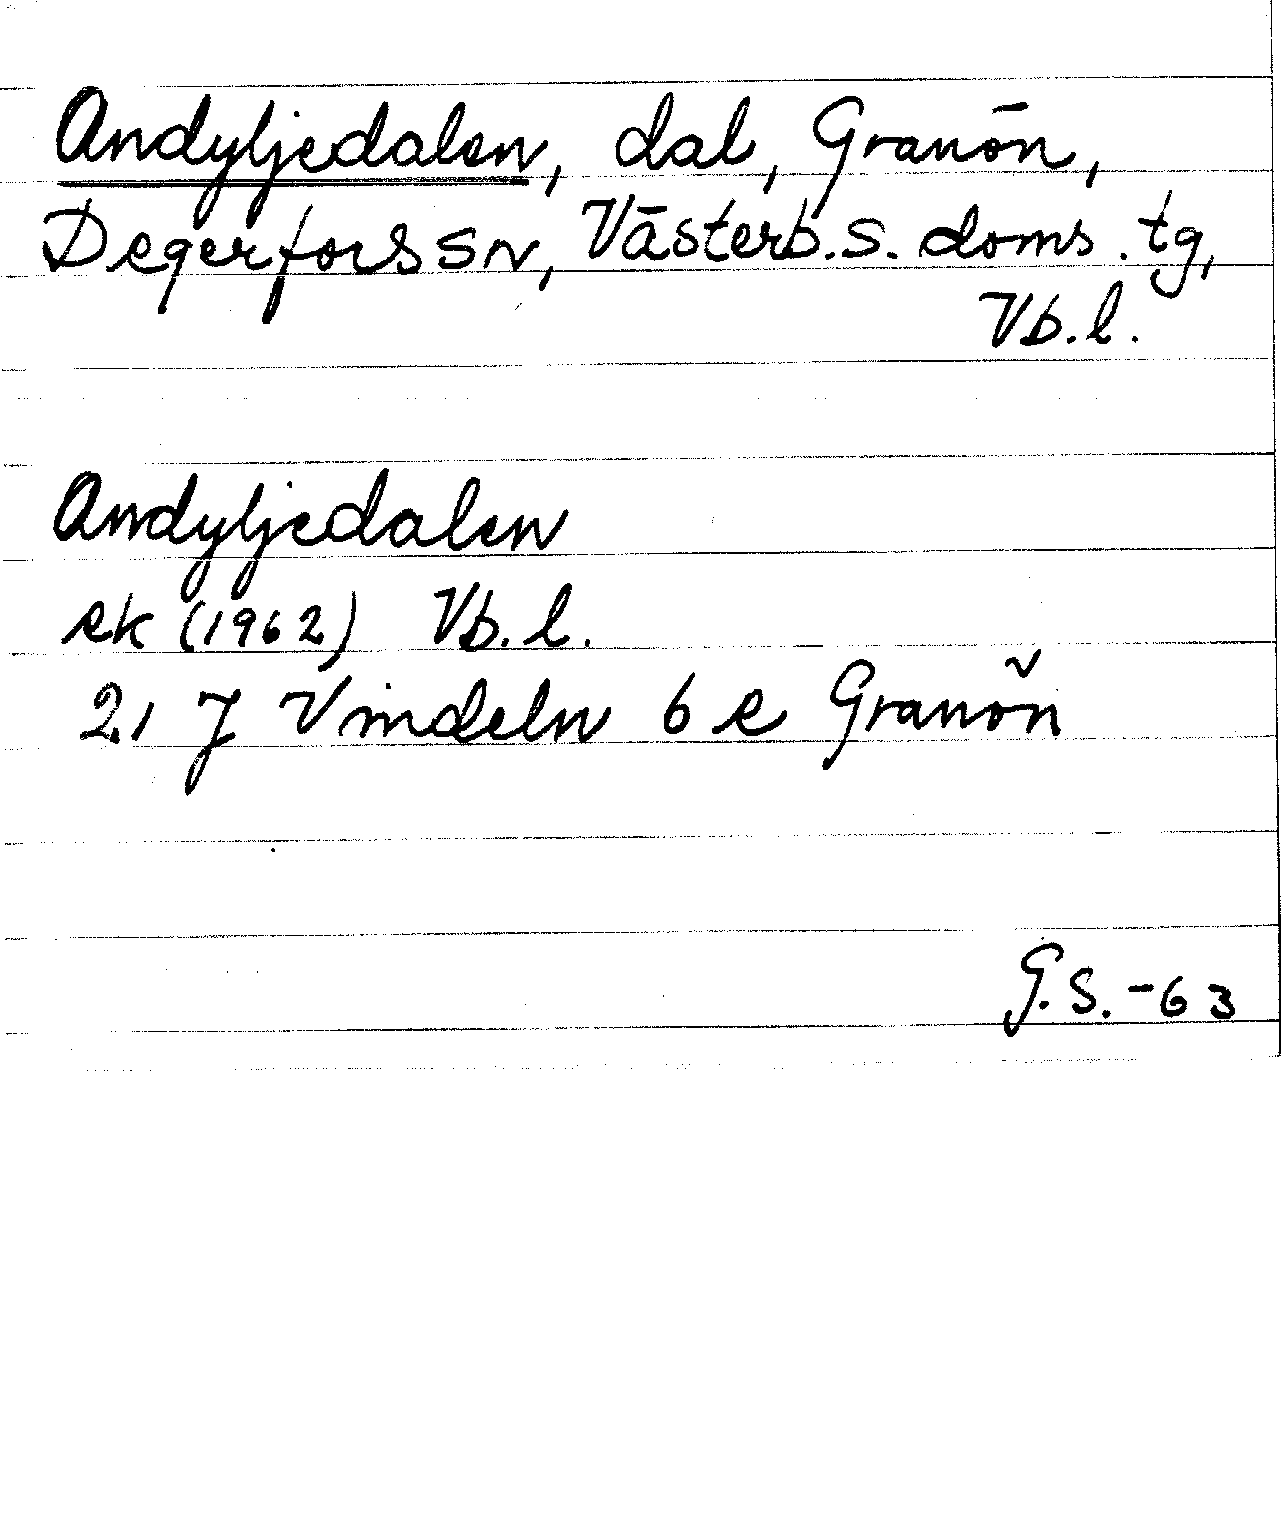 Andyljedalen, dal, Granön,
Degerfors sn, Västerb. s. doms. tg,
Vb. l.
Andyljedalen
ek (1962) Vb. l.
21 J Vindeln 6 e Granön
G. S. -63